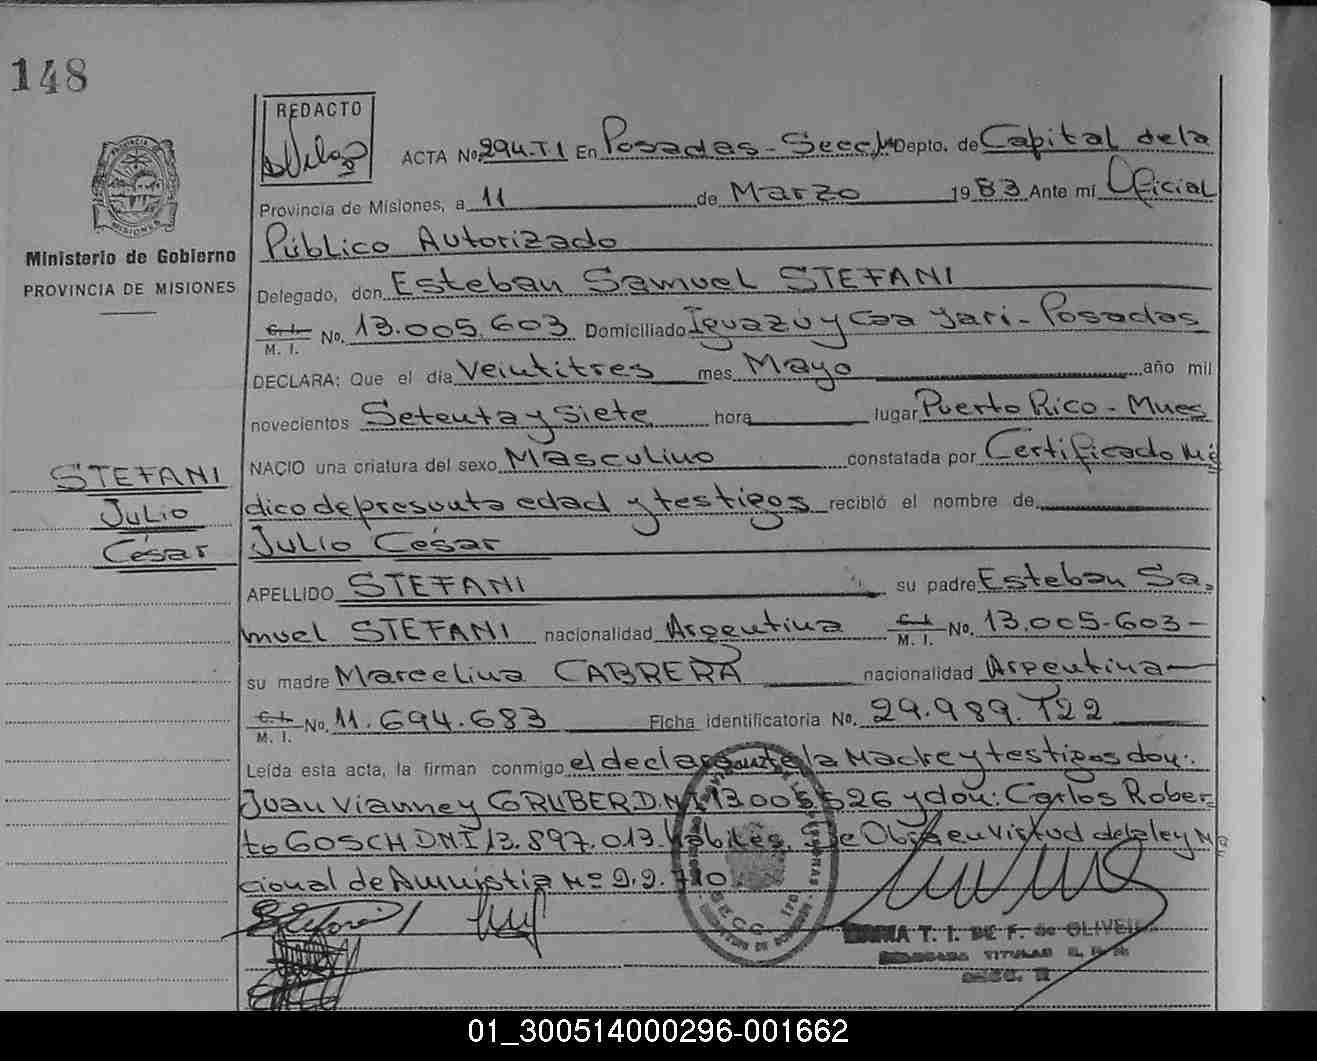 148
REDACTO
ACTA No. 294.T1 En Posadas - Secc 1ª Depto. de Capital de la
Provincia de Misiones, a 11 de Marzo 1983 Ante mí Oficial
Público Autorizado
Ministerio de Gobierno
PROVINCIA DE MISIONES
Delegado, don Esteban Samuel STEFANI
C. I. M. I. No. 13.005.603 Domiciliado Iguazú y Caa Yari - Posadas
DECLARA: Que el día Veintitres mes Mayo año mil
novecientos Setenta y Siete hora lugar Puerto Rico - Mnes
NACIO una criatura del sexo Masculino constatada por Certificado Mé
STEFANI
Julio
César
dico de presunta edad y testigos recibió el nombre de
Julio César
APELLIDO STEFANI su padre Esteban Sa.
muel STEFANI nacionalidad Argentina C. I. M. I. No. 13.005.603 -
su madre Marcelina CABRERA nacionalidad Argentina
C. I. M. I. No. 11.694.683 Ficha identificatoria No. 29.989.722
Leída esta acta, la firman conmigo el declarante la Madre y testigos don:
Juan Vianney GRUBER D.N.I 13.005.526 y don: Carlos Rober-
to GOSCH DNI 13.897.013 habiles. Se Obra en Virtud de la ley Na
cional de Amnistia Nº 22.710
T. I. DE F. de OLIVEIRA
DELEGADA TITULAR
SECC.
01_300514000296-001662